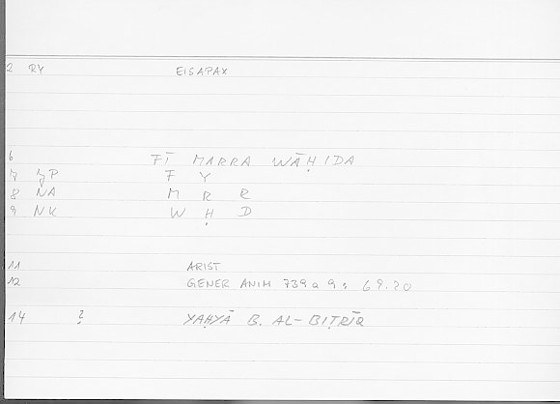 2 RY EISAPAX
6 FĪ MARRA WĀḤIDA
7 ȜP F Y
8 NA M R R
9 NK W Ḥ D
11 ARIST
12 GENER ANIM 739 a 9 : 69.20
14 ? YAḤYĀ B. AL-BIṬRĪQ